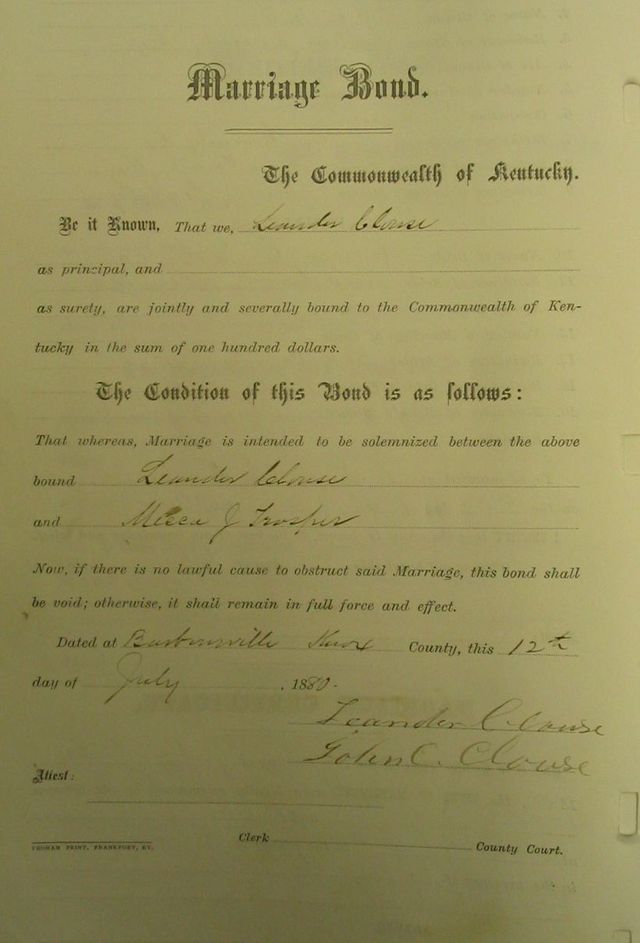 Marriage Bond.
The Commonwealth of Kentucky.
Be it Known, That we, Leander Clouse
as principal, and
as surety, are jointly and severally bound to the Commonwealth of Ken-
tucky in the sum of one hundred dollars.
The Condition of this Bond is as follows:
That whereas, Marriage is intended to be solemnized between the above
bound Leander Clouse
and J Trosper
Now, if there is no lawful cause to obstruct said Marriage, this bond shall
be void; otherwise, it shall remain in full force and effect.
Dated at Barbourville Knox County, this 12th
day of July, 1880.
Leander Clouse
John C. Clouse
Attest:
Clerk County Court.
YEOMAN PRINT, FRANKFORT, KY.